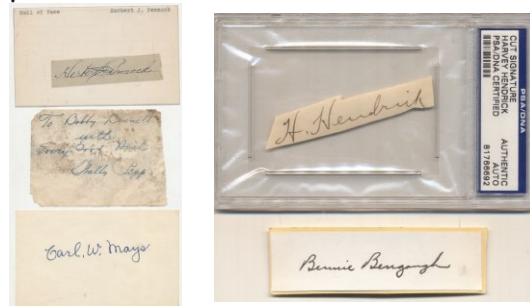 Hall of Fame Herbert J. Pennock
Herb Pennock
To Bobby
with
Every Good Wish
Wally Pipp
Carl. W. Mays
PSA/DNA
CUT SIGNATURE
HARVEY HENDRICK
PSA/DNA CERTIFIED
AUTHENTIC
AUTO
81766692
H. Hendrick
Bennie Bengough